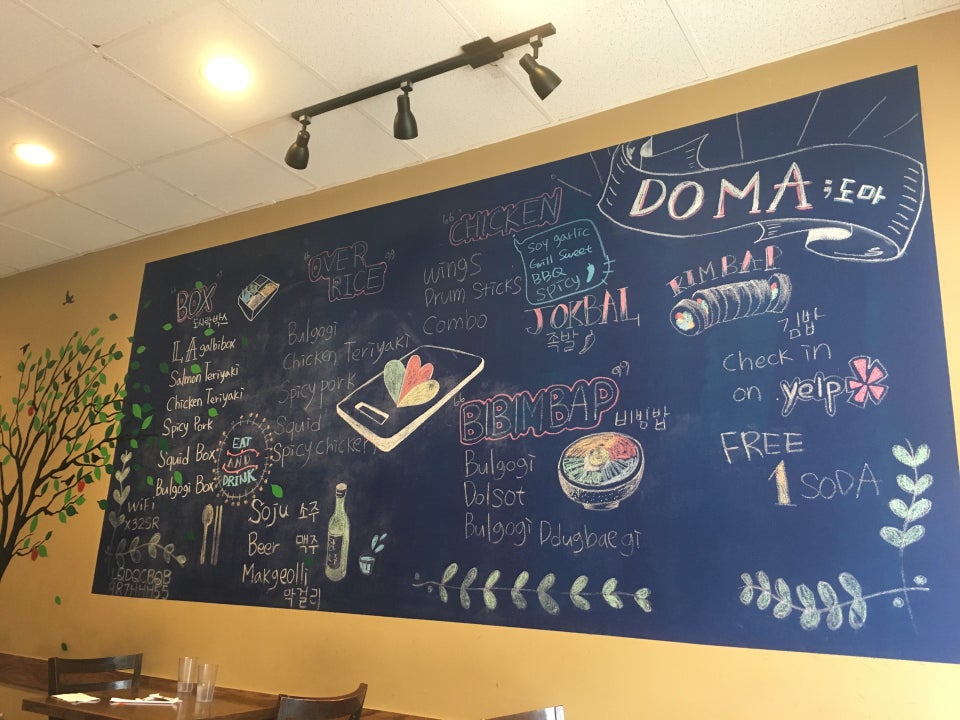 DOMA ;도마
"BOX"
도시락박스
LA galbi box
Salmon Teriyaki
Chicken Teriyaki
Spicy Pork
Squid Box
Bulgogi Box
EAT
AND
DRINK
WiFi
X325R
"OVER
RICE"
Bulgogi
Chicken Teriyaki
Spicy pork
Squid
Spicy chicken
Soju 소주
Beer 맥주
Makgeolli
막걸리
"CHICKEN
Soy garlic
Grill Sweet
BBQ
SPICY
Wings
Drum Sticks
Combo
JOKBAL
족발
"BIBIMBAP"
비빔밥
Bulgogi
Dolsot
Bulgogi Ddugbaegi
KIMBAP
김밥
Check in
on yelp
FREE
1 SODA